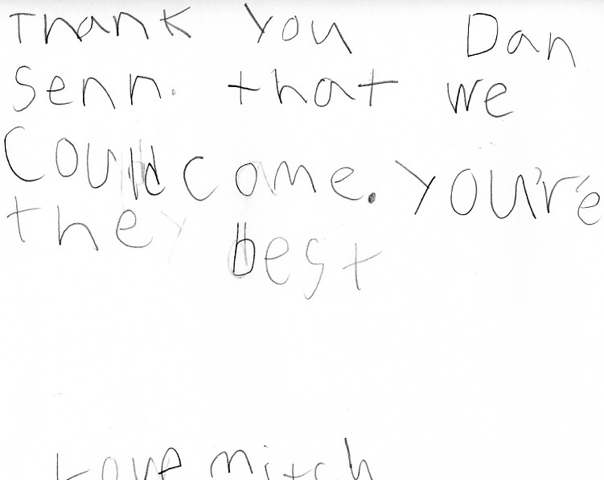 Thank You Dan
Senn. that we
Could come. You're
the best
Love mitch